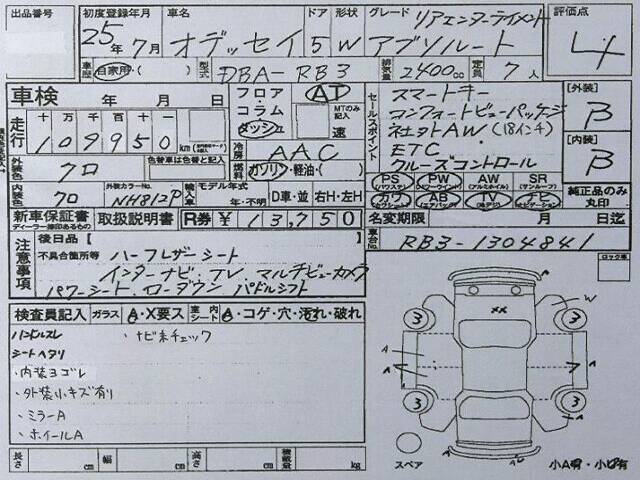 出品番号 初度登録年月 車名 ドア 形状 グレード リアエンターテイメント 評価点
25年7月 オデッセイ 5 W アブソルート 4
車歴 自家用・( ) 型式 DBA-RB3 排気量 2400cc 定員 7人
車検 年 月 日 フロア・コラム・ダッシュ AT MTのみ記入 速
セールスポイント スマートキー
コンフォートビューパッケージ
社外AW(18インチ)
ETC
クルーズコントロール
[外装] B
[内装] B
走行 十 万 千 百 十 一
109950 km
冷房 AAC
外装色 クロ 色替車は色替と記入 燃料 ガソリン・軽油・( )
内装色 クロ 外装カラーNo. NH812P 輸入車 モデル年式 年・不明 D車・並 右H・左H
PS(パワステ) PW(パワーウィンド) AW(アルミホイル) SR(サンルーフ)
カワ AB(エアバッグ) TV ナビ 純正品のみ丸印
新車保証書 ディーラー捺印あるもの 取扱説明書 R券 ¥13,750 名変期限 月 日迄
車台No. RB3-1304841
注意事項 後日品【 】
不具合箇所等 ハーフレザーシート
インターナビ.TV.マルチビューカメラ
パワーシート.ローダウン パドルシフト
ロック車
検査員記入 ガラス A・X要ス 室内シート A・コゲ・穴・汚れ・破れ
ハンドルスレ ・ナビ未チェック
シートヘタリ
・内装ヨゴレ
・外装小キズ有り
・ミラーA
・ホイールA
長さ cm 幅 cm 高さ cm 積載量 kg
XX W
3 3
A A
A A
3 3
A
スペア 小A有・小ピ有